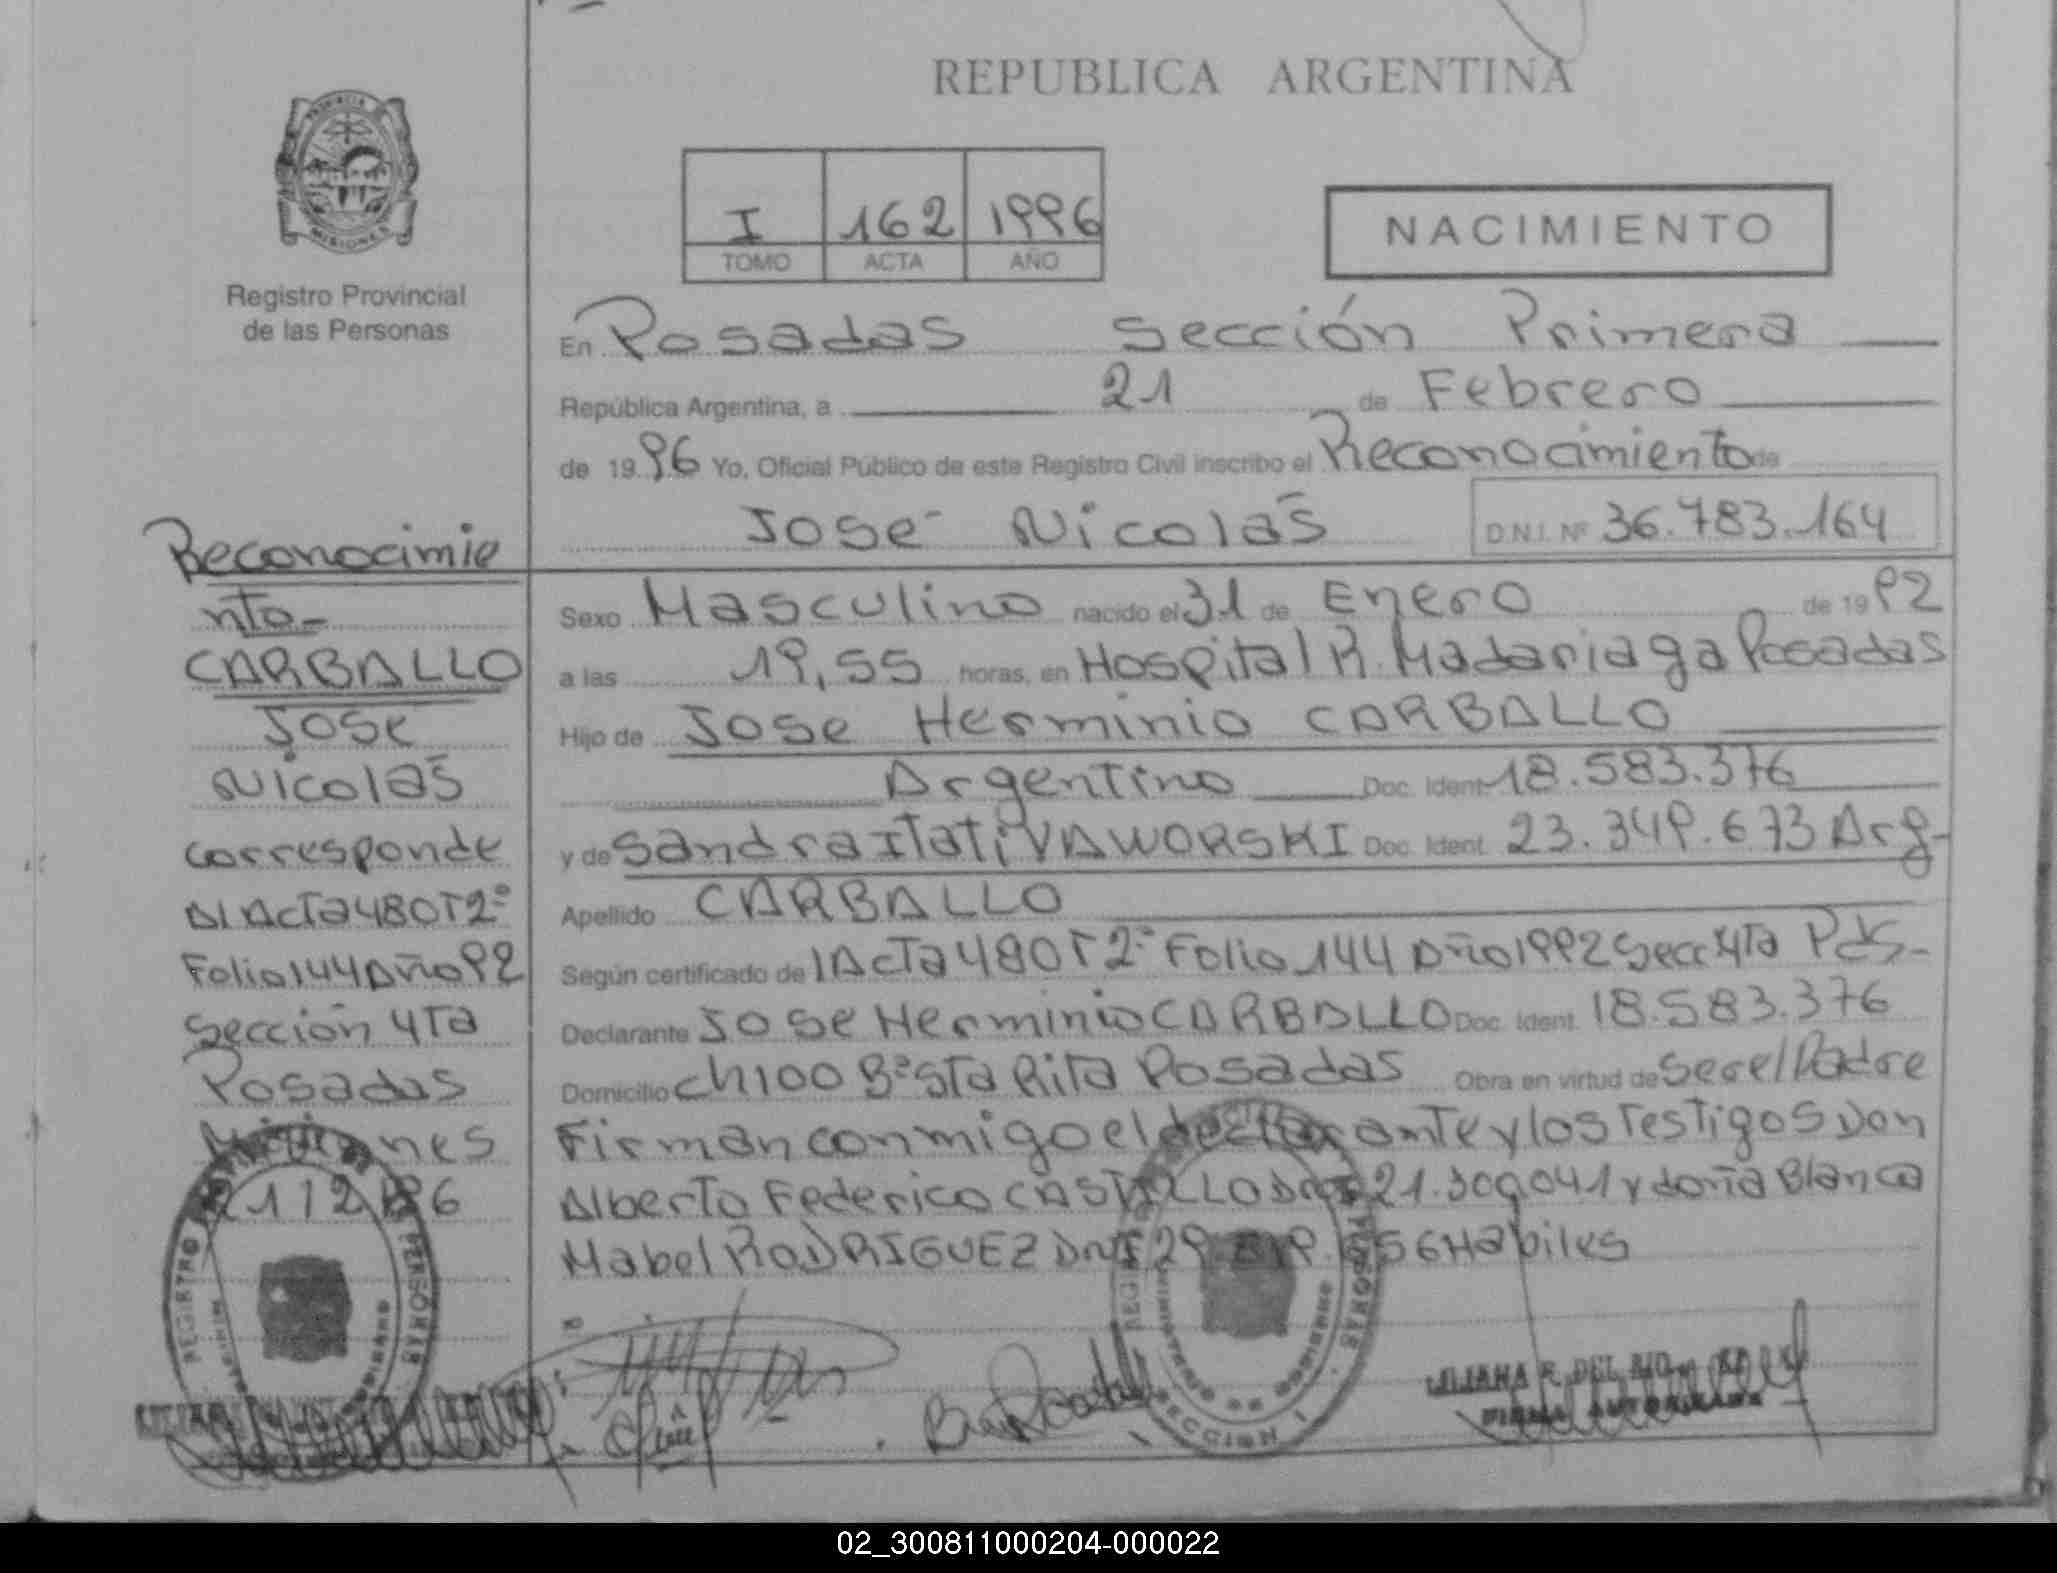 REPUBLICA ARGENTINA
PROVINCIA
MISIONES
Registro Provincial
de las Personas
I 162 1996
TOMO ACTA AÑO
NACIMIENTO
En Posadas Sección Primera
República Argentina, a 21 de Febrero
de 1996 Yo, Oficial Público de este Registro Civil inscribo el Reconocimiento de
José Nicolás D.N.I. Nº 36.783.164
Reconocimie
nto-
CARBALLO
Jose
Nicolás
corresponde
Al Acta 480 T 2º
Folio 144 Año 92
Sección 4ta
Posadas
Misiones
Sexo Masculino nacido el 31 de Enero de 1992
a las 19,55 horas, en Hospital R. Madariaga Posadas
Hijo de Jose Herminio CARBALLO
Argentino Doc. Ident 18.583.376
y de Sandra Itatí YAWORSKI Doc. Ident. 23.349.673 Arg-
Apellido CARBALLO
Según certificado de l Acta 480 T 2º Folio 144 Año 1992 Secc 4ta Pds-
Declarante Jose Herminio CARBALLO Doc. Ident. 18.583.376
Domicilio Ch 100 Bº Sta Rita Posadas Obra en virtud de Ser el Padre
Firman conmigo el declarante y los testigos Don
Alberto Federico CASTILLO DNI 21.309041 y doña Blanca
Mabel RODRIGUEZ DNI 29. 956 Habiles
REGISTRO PERSONAS
SECCION I
LILIANA R. DEL RIO
FIRMA AUTORIZADA
02_300811000204-000022